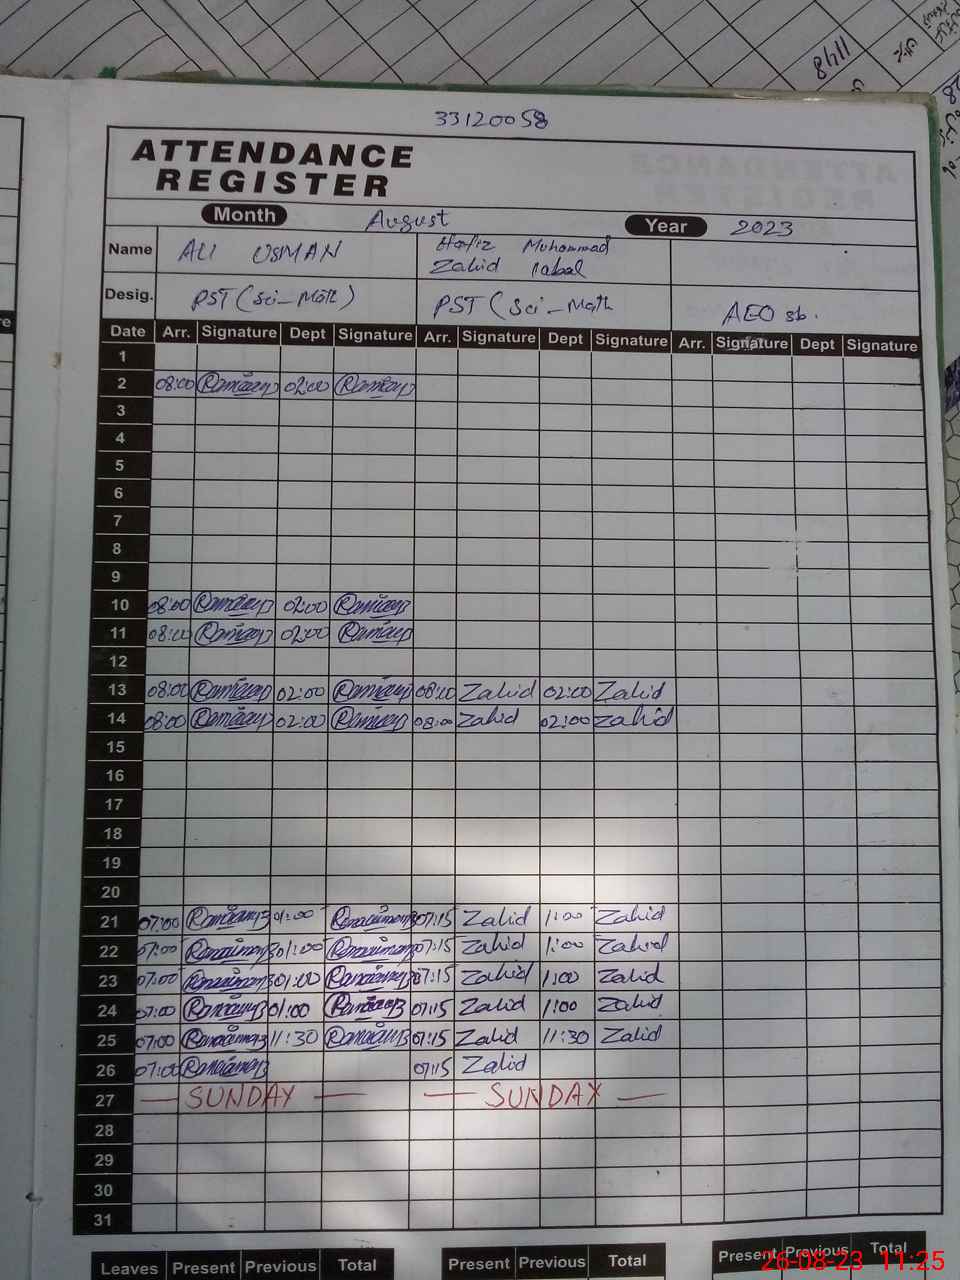 1148
33120058
ATTENDANCE
REGISTER
Month August Year 2023
Name ALI USMAN Hafiz Muhammad
Zahid Iqbal
Desig. PST (Sci-Math) PST (Sci-Math AEO sb.
Date Arr. Signature Dept Signature Arr. Signature Dept Signature Arr. Signature Dept Signature
1
2 08:00 02:00
3
4
5
6
7
8
9
10 08:00 02:00
11 08:00 02:00
12
13 08:00 02:00 08:00 Zahid 02:00 Zahid
14 08:00 02:00 08:00 Zahid 02:00 Zahid
15
16
17
18
19
20
21 07:00 01:00 07:15 Zahid 1:00 Zahid
22 07:00 01:00 07:15 Zahid 1:00 Zahid
23 07:00 01:00 07:15 Zahid 1:00 Zahid
24 07:00 01:00 07:15 Zahid 1:00 Zahid
25 07:00 11:30 07:15 Zahid 11:30 Zahid
26 07:00 07:15 Zahid
27 — SUNDAY — — SUNDAY —
28
29
30
31
Leaves Present Previous Total Present Previous Total Present Previous Total
26-08-23 11:25